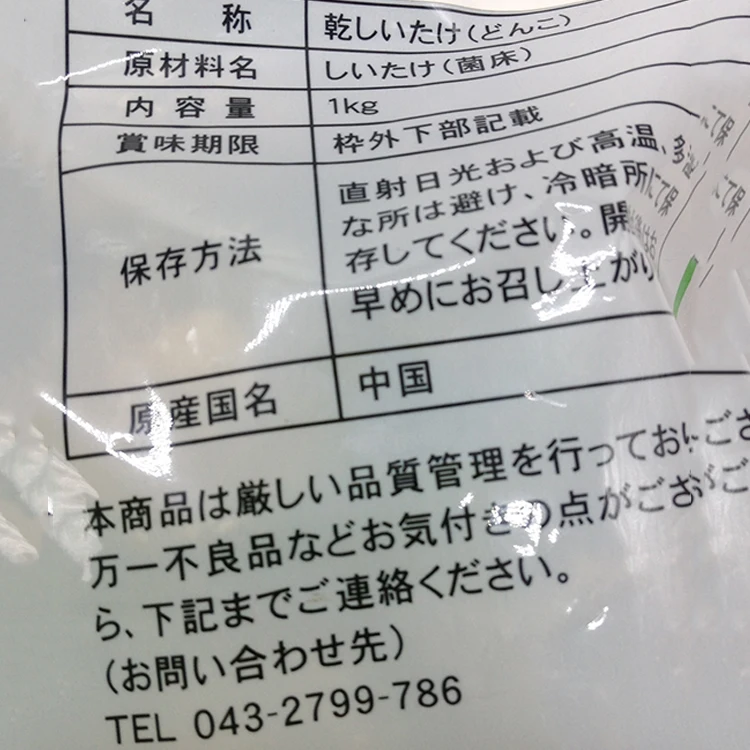 名称 乾しいたけ(どんこ)
原材料名 しいたけ(菌床)
内容量 1kg
賞味期限 枠外下部記載
保存方法
直射日光および高温、多湿
な所は避け、冷暗所にて保
存してください。開
早めにお召し上がり
原産国名 中国
本商品は厳しい品質管理を行っており
万一不良品などお気付きの点がござ
ら、下記までご連絡ください。
(お問い合わせ先)
TEL 043-2799-786